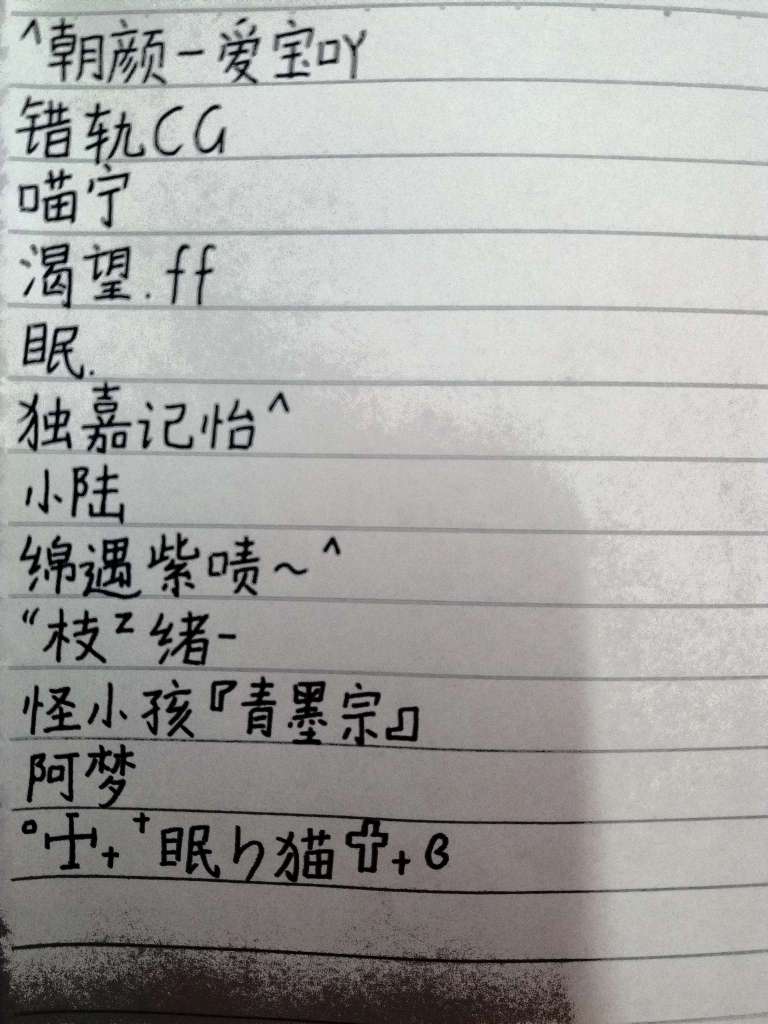 ^朝颜-爱宝吖
错轨CG
喵宁
渴望.ff
眠.
独嘉记怡^
小陆
绵遇紫啧~^
“枝ᶻ绪-
怪小孩『青墨宗』
阿梦
°☩₊⁺眠り猫✞₊ɞ